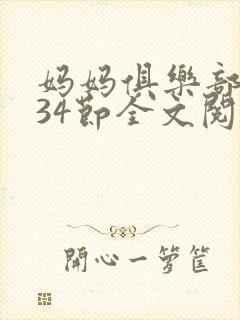 妈妈俱樂部
34節全文閱
開心一箩筐